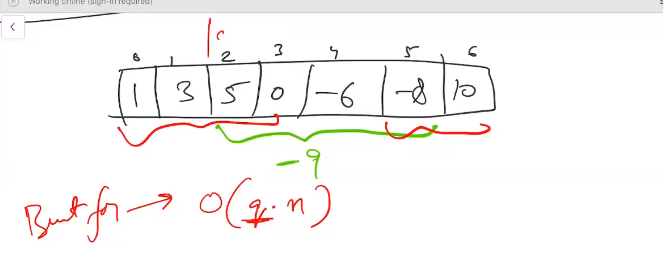 Working online (sign-in required)
0 1 2 3 4 5 6
1 3 5 0 -6 -8 10
-9
→ O(q.n)